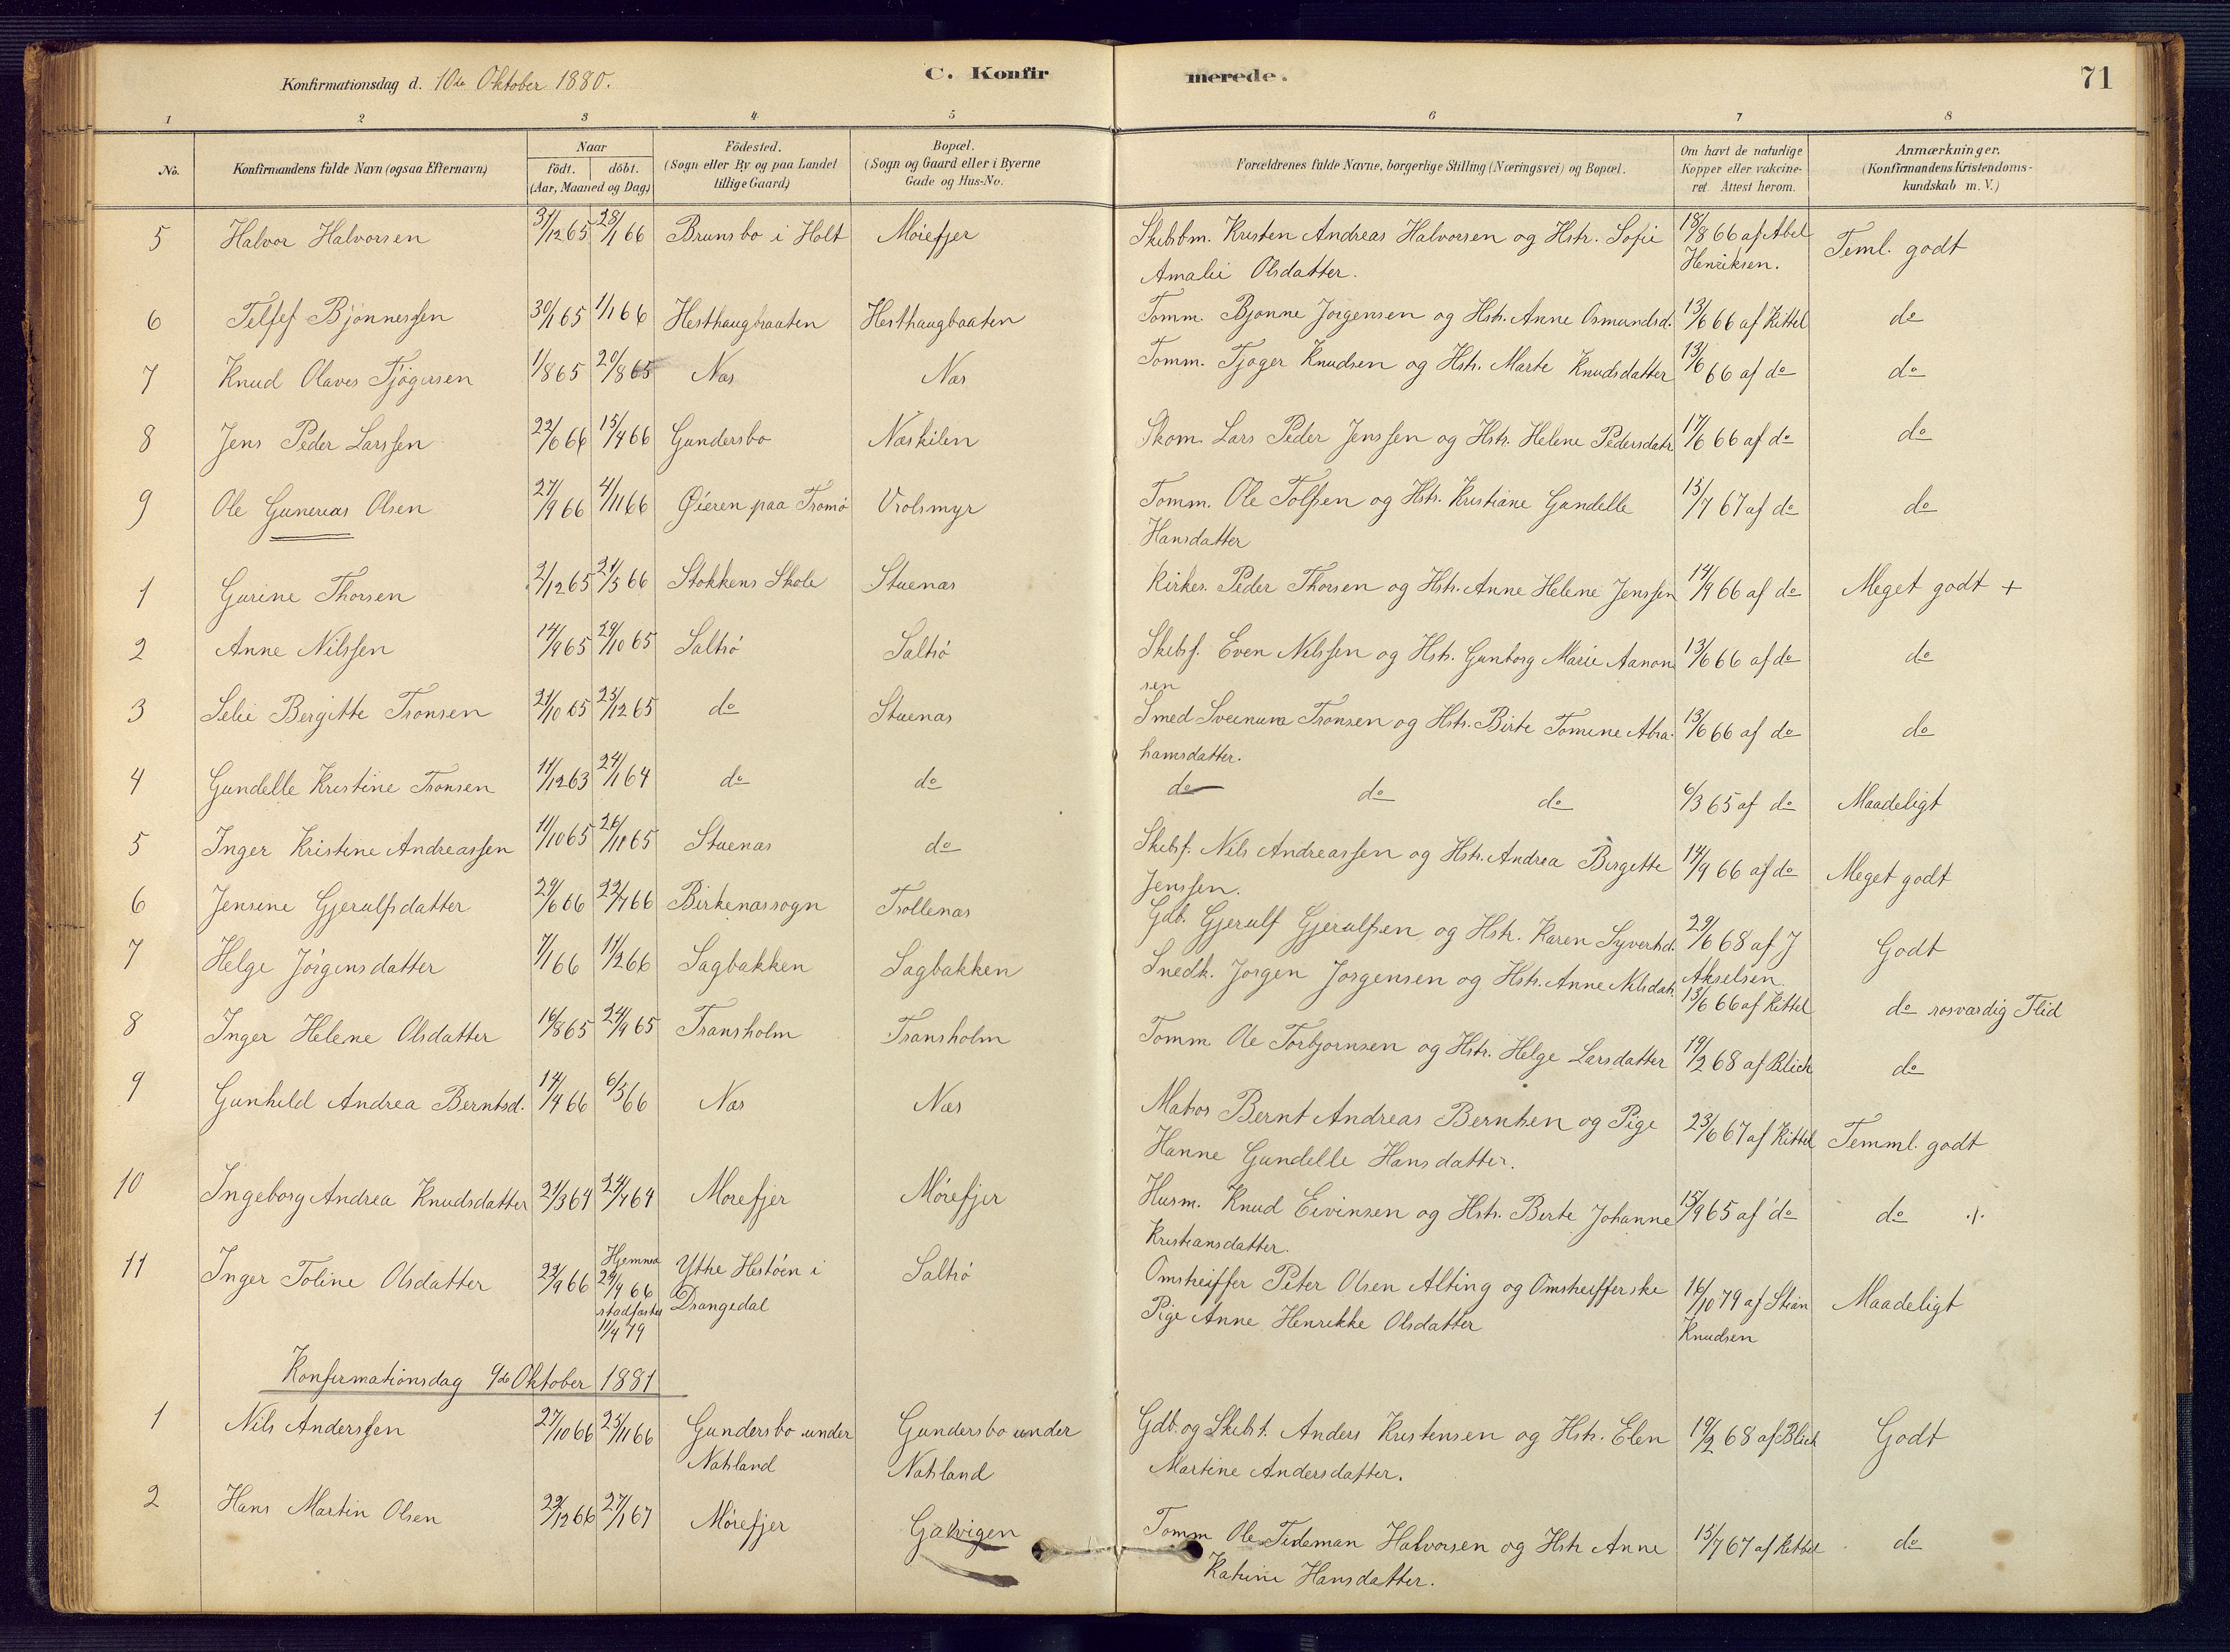 Konfirmationsdag d. 10de Oktober 1880.
C. Konfirmerede.
71
1 2 3 4 5 6 7 8
No. Konfirmandens fulde Navn (ogsaa Efternavn) Naar födt. döbt. (Aar, Maaned og Dag) Födested. (Sogn eller By og paa Landet tillige Gaard) Bopæl. (Sogn og Gaard eller i Byerne Gade og Hus-No. Forældrenes fulde Navne, borgerlige Stilling (Næringsvei) og Bopæl. Om havt de naturlige Kopper eller vakcineret. Attest herom. Anmærkninger. (Konfirmandens Kristendomskundskab m. V.)
5 Halvor Halvorsen 31/12 65 28/1 66 Brunsbo i Holt Moiefjer Skibsbm. Kristen Andreas Halvorsen og Hstr. Sofie 18/8 66 af Abel Teml. godt
Amalie Olsdatter. Henriksen.
6 Telfef Bjönnessen 30/1 65 1/1 66 Hesthaugbraaten Hesthaugbaaten Tomm. Bjonne Jorgensen og Hstr. Anne Osmundsd. 13/6 66 af Kittel do
7 Knud Olaves Tjögersen 1/8 65 20/8 65 Næs Næs Tomm. Tjoger Knudsen og Hstr. Marte Knudsdatter 13/6 66 af do do
8 Jens Peder Larssen 22/6 66 15/4 66 Gundersbo Næskilen Skom. Lars Peder Jenssen og Hstr. Helene Pedersdatr 17/6 66 af do do
9 Ole Gunerias Olsen 27/9 66 4/11 66 Øieren paa Tromö Violsmyr Tomm. Ole Tolfsen og Hstr. Kristiane Gundelle 15/7 67 af do do
Hansdatter
1 Gurine Thorsen 2/12 65 21/5 66 Stokkens Skole Stuenæs Kirkes. Peder Thorsen og Hstr. Anne Helene Jenssen 14/9 66 af do Meget godt +
2 Anne Nilssen 14/9 65 29/10 65 Saltrö Saltrö Skibsf. Even Nilssen og Hstr. Gunborg Marie Aanon 13/6 66 af do do
sen
3 Selie Bergitte Tronsen 21/10 65 25/12 65 do Stuenæs Smed Sveinuna Tronsen og Hstr. Birte Tomine Abra- 13/6 66 af do do
hamsdatter.
4 Gundelle Kristine Tronsen 11/12 63 24/1 64 do do do do do 6/3 65 af do Maadeligt
5 Inger Kristine Andreassen 11/10 65 26/11 65 Stuenæs do Skibsf. Nils Andreassen og Hstr. Andrea Birgitte 14/9 66 af do Meget godt
Jenssen.
6 Jensine Gjerulfsdatter 29/6 66 22/7 66 Birkenæssogn Trollenæs Gdb. Gjerulf Gjerulfsen og Hstr. Karen Syvertsd. 29/6 68 af J Godt
Akselsen
7 Helge Jörgensdatter 7/1 66 11/2 66 Sagbakken Sagbakken Snedk. Jorgen Jorgensen og Hstr. Anne Nilsdatr. 13/6 66 af Kittel do rosværdig Flid
8 Inger Helene Olsdatter 16/8 65 24/9 65 Fransholm Fransholm Tomm. Ole Torbjornsen og Hstr. Helge Larsdatter 19/2 68 af Blich do
9 Gunhild Andrea Berntsd. 14/4 66 6/5 66 Næs Næs Matros Bernt Andreas Berntsen og Pige 23/6 67 af Kittel Temml. godt
Hanne Gundelle Hansdatter.
10 Ingeborg Andrea Knudsdatter 21/3 64 24/4 64 Morefjer Mörefjer Husm. Knud Eivinsen og Hstr. Berte Johanne 15/9 65 af do do ./.
Kristiansdatter.
11 Inger Toline Olsdatter 23/9 66 Hjemmed. 29/9 66 stadfæstet 11/4 79 Ythe Hestöen i Saltrö Omstreiffer Peter Olsen Alting og Omstreifferske 16/10 79 af Stian Maadeligt
Drangedal Pige Anne Henrikke Olsdatter Knudsen
Konfirmationsdag 9de Oktober 1881
1 Nils Anderssen 27/10 66 25/11 66 Gundersbo under Gundersbo under Gdb. og Skibst. Anders Kristensen og Hstr. Elen 19/2 68 af Blich Godt
Natsland Natsland Martine Andersdatter.
2 Hans Martin Olsen 29/12 66 27/1 67 Mörefjer Galvigen Tomm Ole Tideman Halvorsen og Hstr Anne 15/7 67 af Kittel do
Katrine Hansdatter.